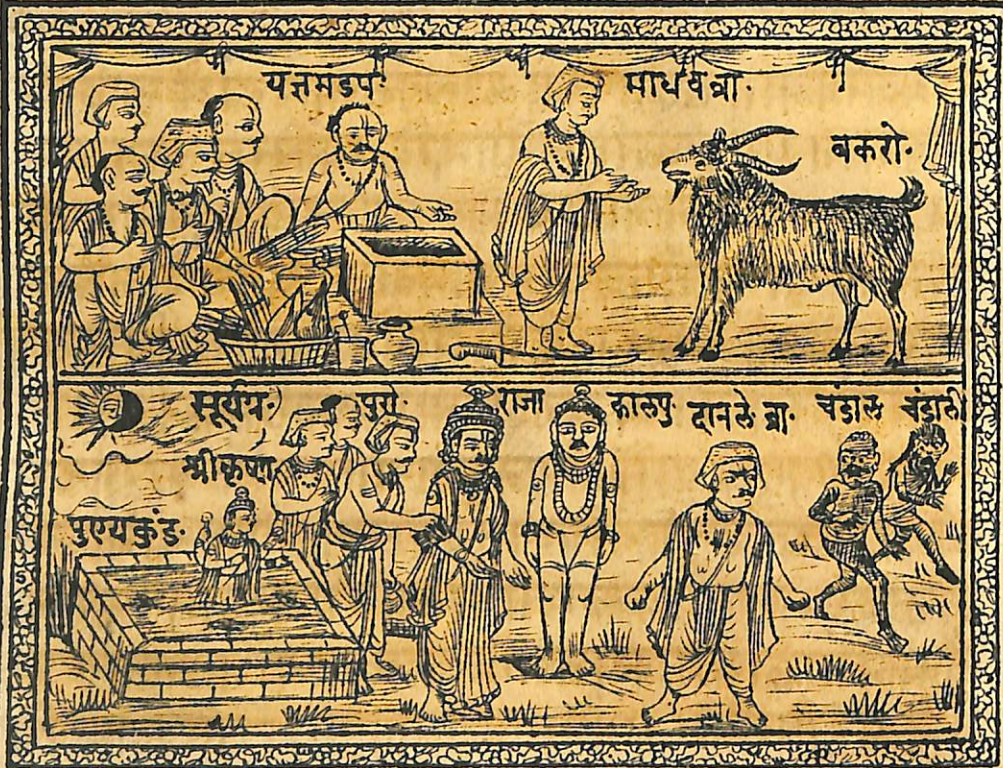 यज्ञमडप· माधवब्रा·
बकरो·
सूर्यग्र·) पुरो· राजा कालपु· दानले ब्रा· चंडाल चंडाली
श्रीकृष्ण
पुण्यकुंड·